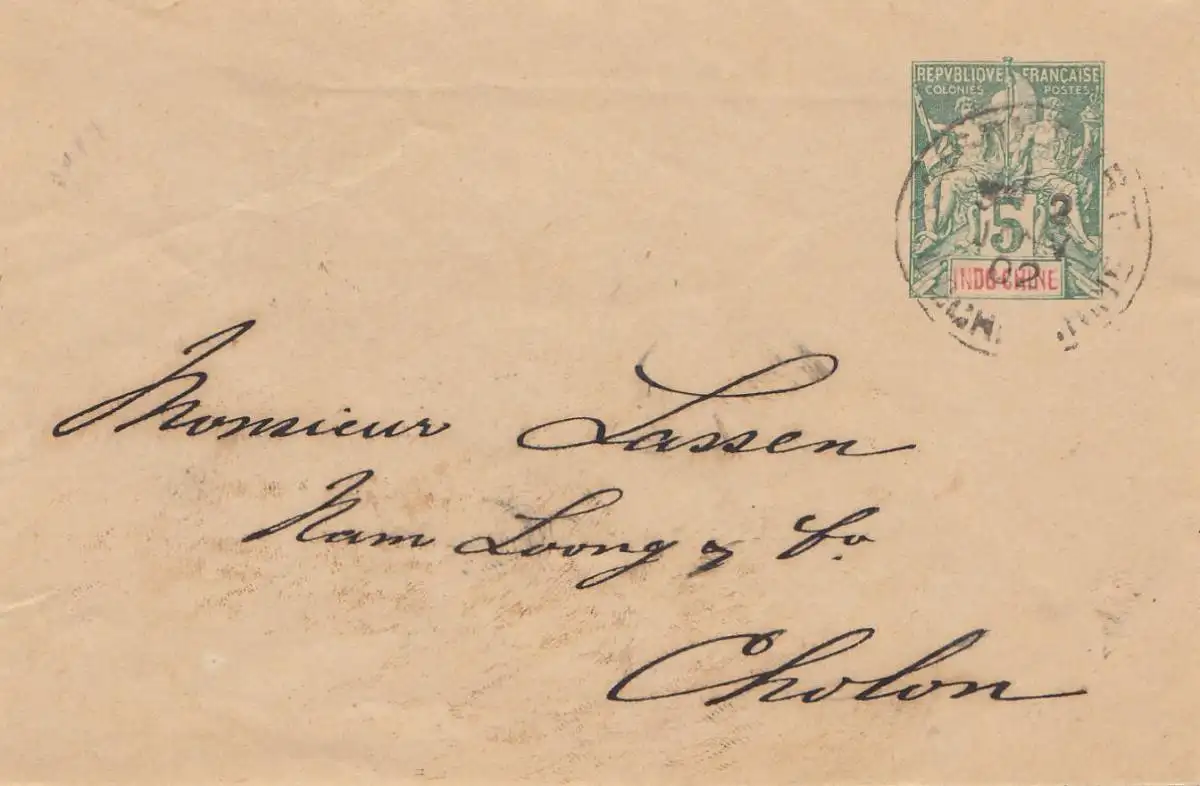 REPVBLIQVE FRANÇAISE
COLONIES POSTES
3
5
02
INDO-CHINE
Monsieur Lassen
Nam Loong & Co.
Cholon